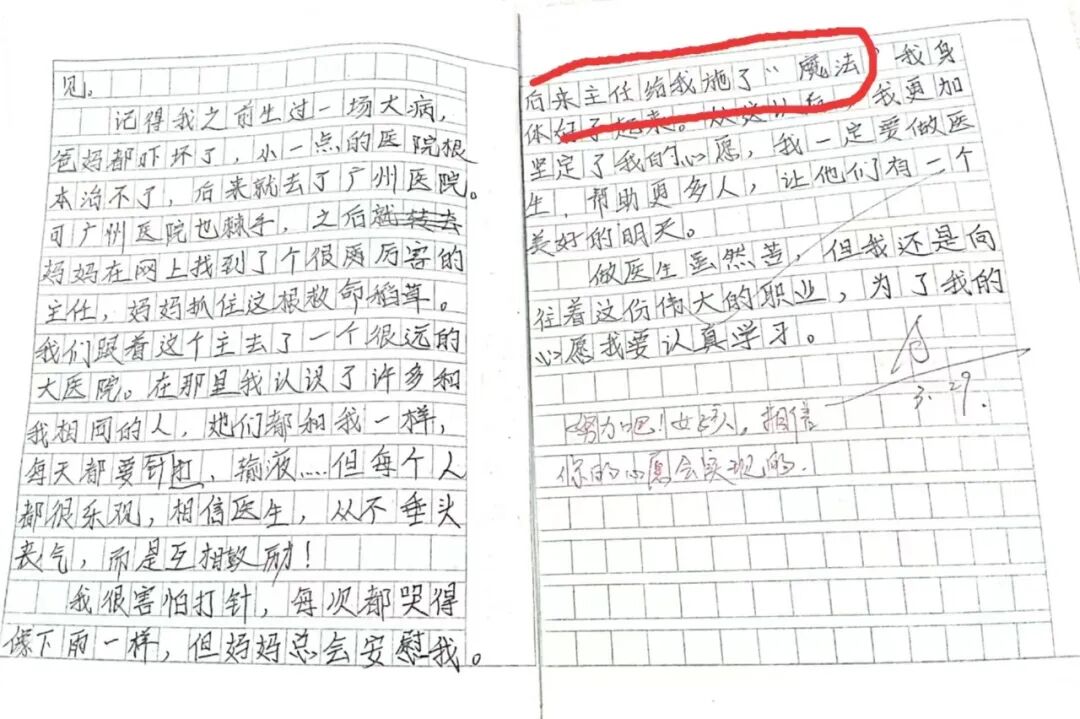 见。
记得我之前生过一场大病，
爸妈都吓坏了，小一点的医院根
本治不了，后来就去了广州医院。
可广州医院也棘手，之后就转去
妈妈在网上找到了个很厉厉害的
主任，妈妈抓住这根救命稻草。
我们跟着这个主去了一个很远的
大医院。在那里我认识了许多和
我相同的人，她们都和我一样，
每天都要针打，输液……但每个人
都很乐观，相信医生，从不垂头
丧气，而是互相鼓励！
我很害怕打针，每次都哭得
像下雨一样，但妈妈总会安慰我。
后来主任给我施了“魔法”我身
体好了起来。从这以后，我更加
坚定了我的心愿，我一定要做医
生，帮助更多人，让他们有一个
美好的明天。
做医生虽然苦，但我还是向
往着这份伟大的职业，为了我的
心愿我要认真学习。
3.29.
努力吧！女孩，相信
你的心愿会实现的.